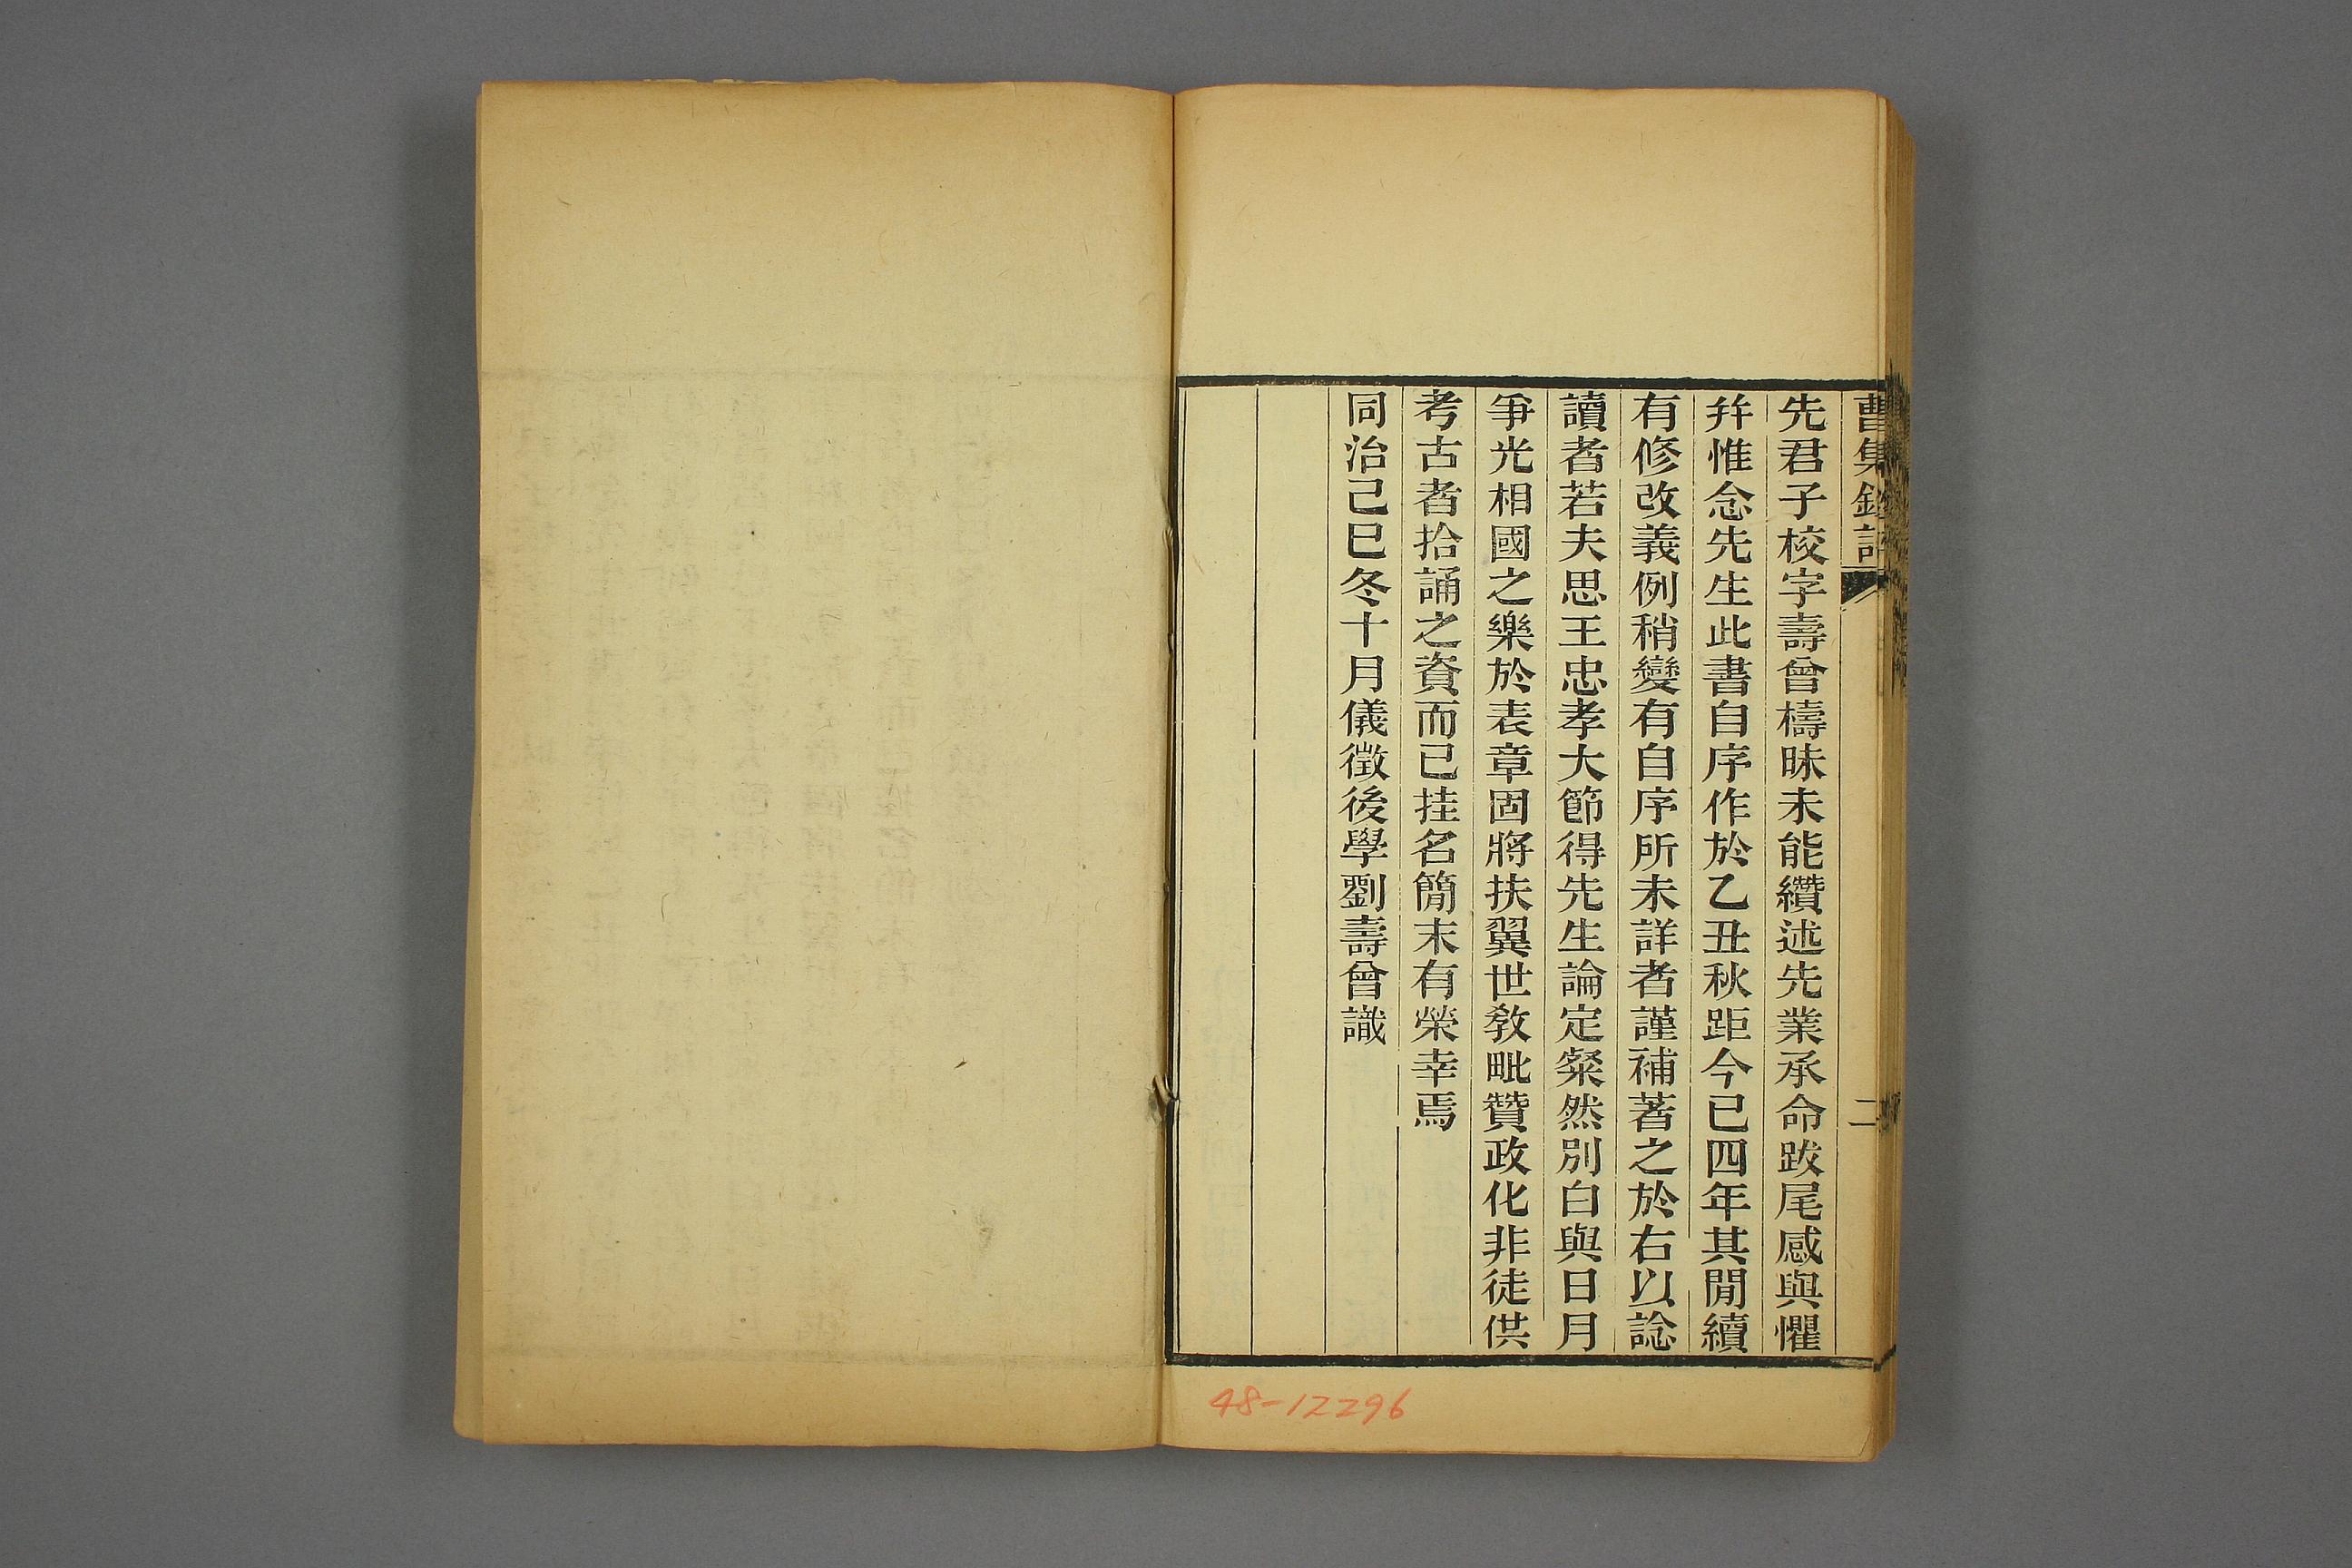 曹集銓評
二
先君子校字壽曾檮昧未能纘述先業承命跋尾感與懼
幷惟念先生此書自序作於乙丑秋距今已四年其閒續
有修改義例稍變有自序所未詳者謹補著之於右以諗
讀者若夫思王忠孝大節得先生論定粲然別白與日月
爭光相國之樂於表章固將扶翼世敎毗贊政化非徒供
考古者拾誦之資而已挂名簡末有榮幸焉
同治己巳冬十月儀徵後學劉壽曾識
48-12296